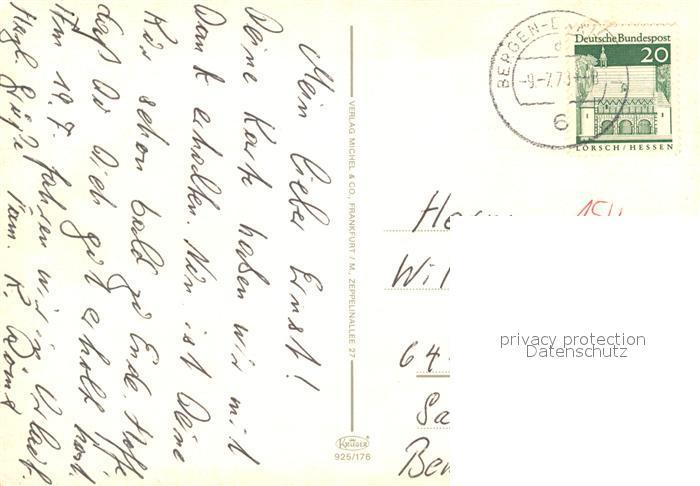 Mein lieber Ernst!
Deine Karte haben wir mit
Dank erhalten. Nun ist Deine
Kur schon bald zu Ende. Hoffe
daß Du Dich gut erholt hast.
Am 19.7. fahren wir in Urlaub.
Herzl. Grüße Fam. K.
VERLAG MICHEL & CO., FRANKFURT / M., ZEPPELINALLEE 27
KRÜGER
925/176
BERGEN-
-9.-7.7
6
Deutsche Bundespost
20
LORSCH/HESSEN
He
Wil
64
Sa
Ben
privacy protection
Datenschutz